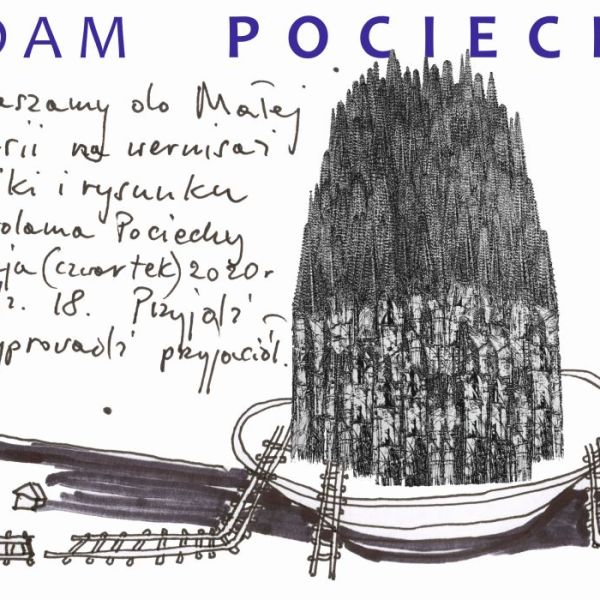 DAM POCIEC
aszamy do Małej
rii na wernisaż
ki i rysunku
dama Pociechy
ja (czwartek) 2020 r
z. 18. Przyjdź
yprowadź przyjaciół.